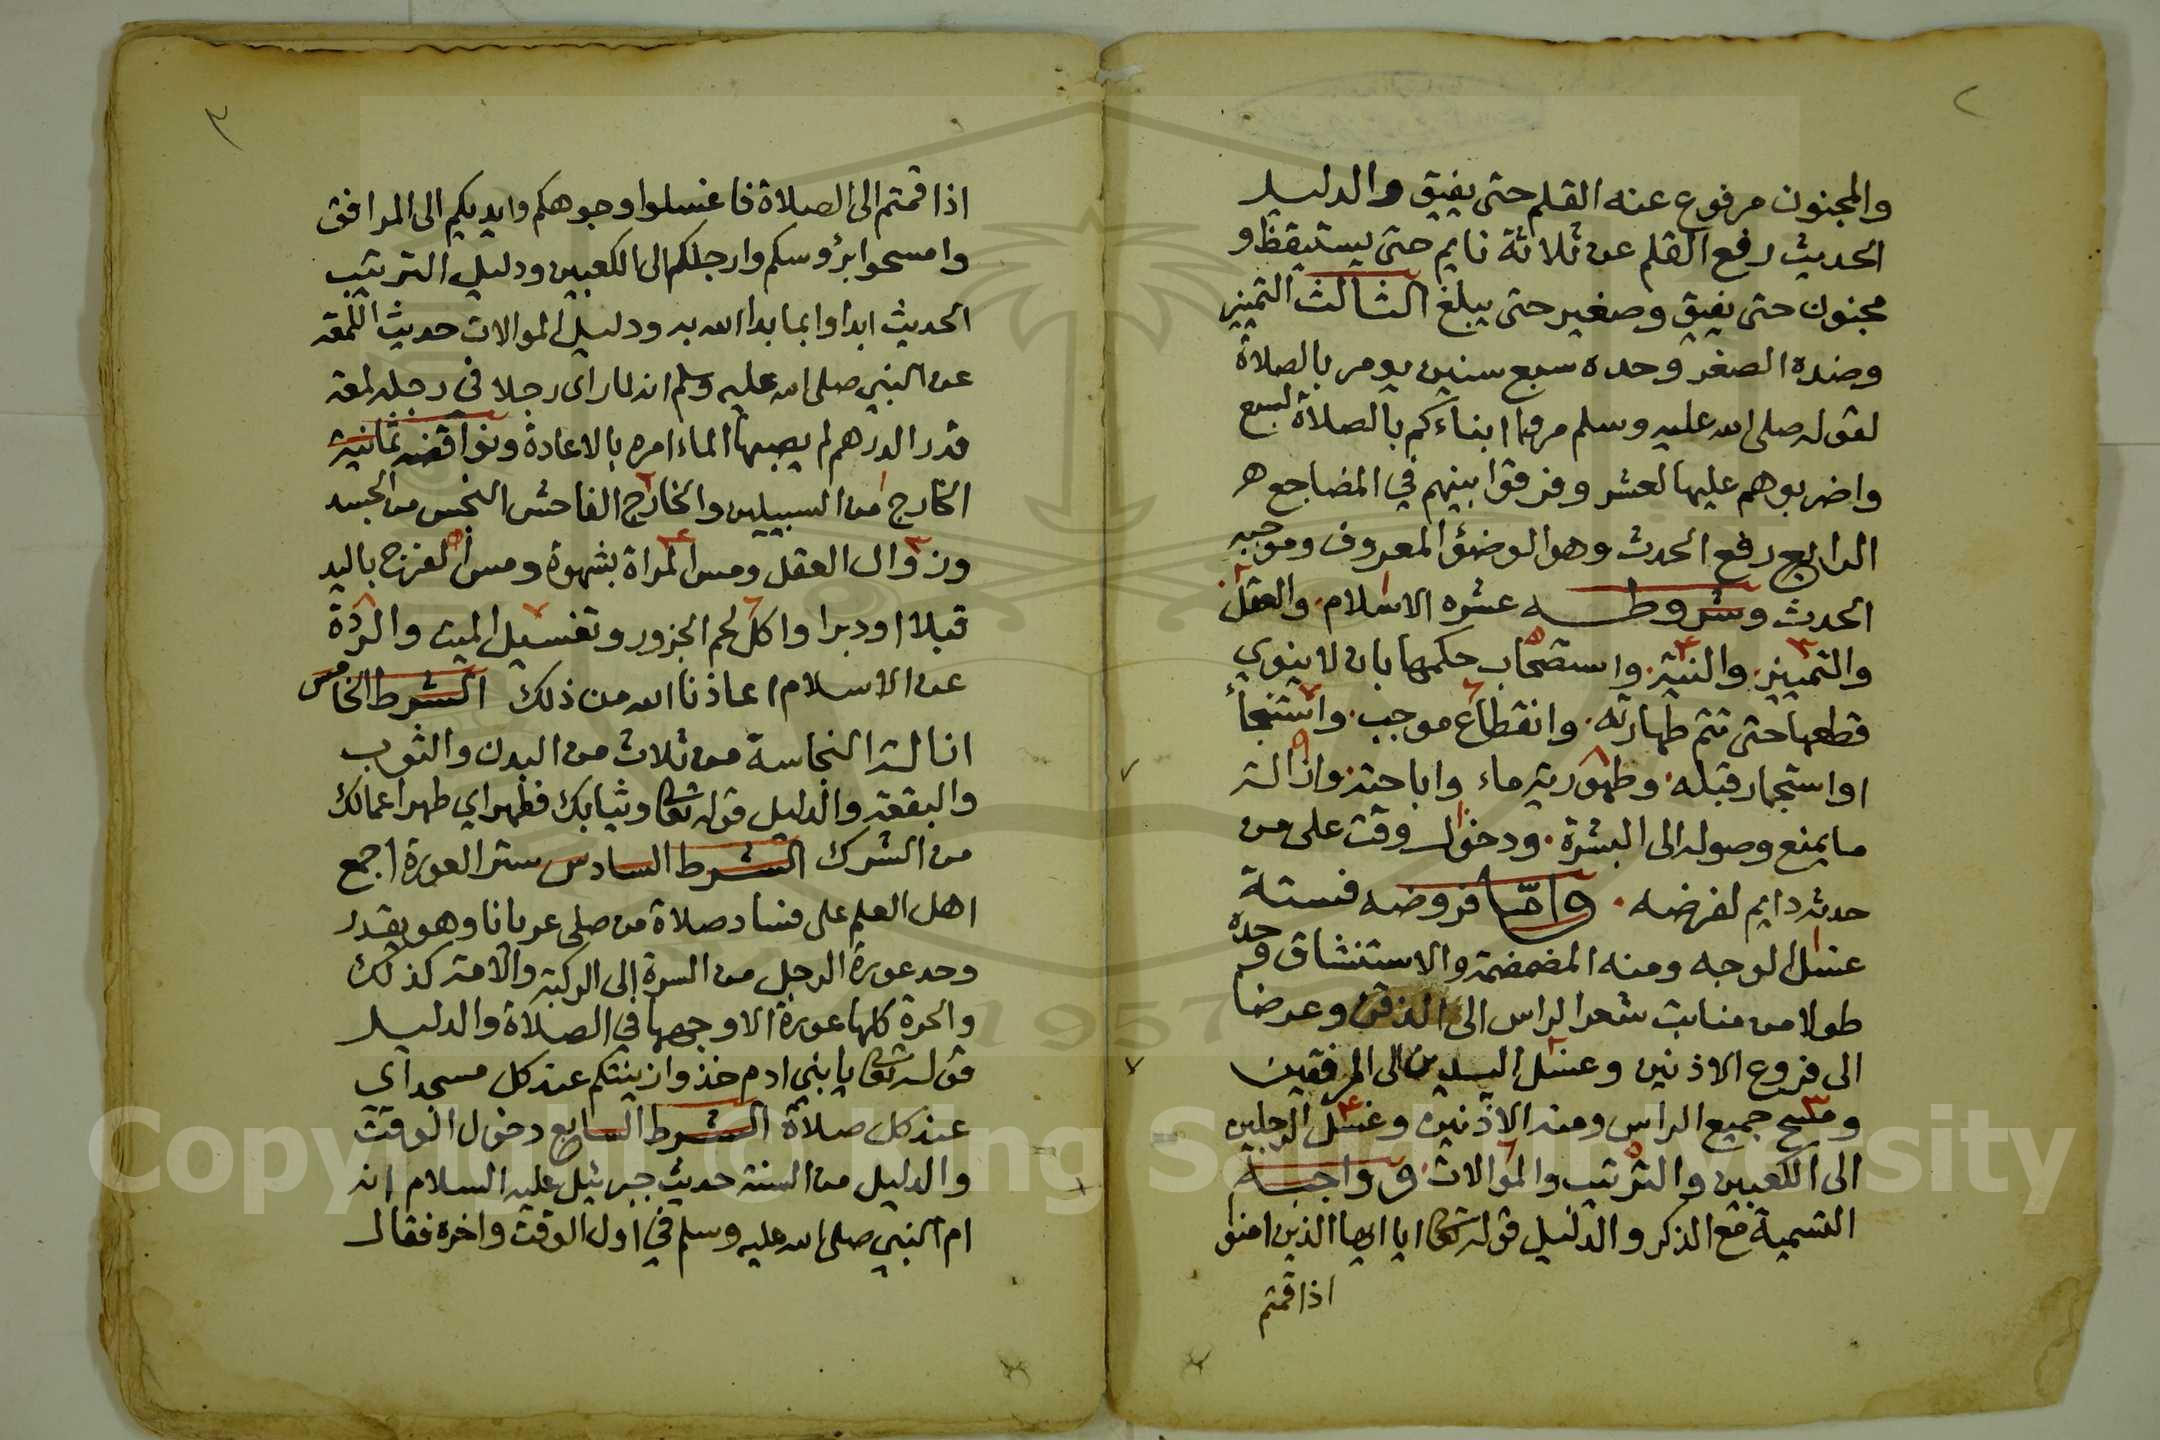 ٢
والمجنون مرفوع عنه القلم حتى يفيق والدليل
الحديث رفع القلم عن ثلاثة نايم حتى يستيقظ و
مجنون حتى يفيق وصغير حتى يبلغ الثالث التميز
وضده الصغر وحده سبع سنين يومر بالصلاة
لقوله صلى الله عليه وسلم مروا ابناءكم بالصلاة لسبع
واضربوهم عليها لعشر وفرقوا بينهم في المضاجع ه
الرابع رفع الحدث وهو الوضؤ المعروف وموجبه
الحدث وشروطه عشره الاسلام والعقل
والتمييز والنية واستصحاب حكمها بان لا ينوي
قطعها حتى تتم طهارته وانقطاع موجب واستنجأ
او استجمار قبله وطهورية ماء واباحته وازالة
ما يمنع وصوله الى البشرة ودخول وقت على من
حدثه دايم لفرضه واما فروضه فستة
غسل الوجه ومنه المضمضة والاستنشاق وحده
طولا من منابت شعر الراس الى الذقن وعرضا
الى فروع الاذنين وغسل اليدين الى المرفقين
ومسح جميع الراس ومنه الاذنين وغسل الرجلين
الى الكعبين والترتيب والموالات وواجبه
التسمية مع الذكر والدليل قوله تعالى يا ايها الذين امنو
اذا قمتم
٣
اذا قمتم الى الصلاة فاغسلوا وجوهكم وايديكم الى المرافق
وامسحوا برؤوسكم وارجلكم الى الكعبين ودليل الترتيب
الحديث ابداوا بما بدا الله به ودليل الموالات حديث اللمعة
عن النبي صلى الله عليه وسلم انه لما راى رجلا في رجله لمعة
قدر الدرهم لم يصبها الماء امره بالاعادة ونواقضه ثمانية
الخارج من السبيلين والخارج الفاحش النجس من الجسد
وزوال العقل ومس المراة بشهوة ومس الفرج باليد
قبلا او دبرا واكل لحم الجزور وتغسيل الميت والردة
عن الاسلام اعاذنا الله من ذلك الشرط الخامس
ازالة النجاسة من ثلاث من البدن والثوب
والبقعة والدليل قوله تعالى وثيابك فطهر اي طهر اعمالك
من الشرك الشرط السادس ستر العورة اجمع
اهل العلم على فساد صلاة من صلى عريانا وهو يقدر
وحد عورة الرجل من السرة إلى الركبة والامة كذلك
والحرة كلها عورة الا وجهها في الصلاة والدليل
قوله تعالى يا بني ادم خذوا زينتكم عند كل مسجد اي
عند كل صلاة الشرط السابع دخول الوقت
والدليل من السنة حديث جبرئيل عليه السلام انه
ام النبي صلى الله عليه وسلم في اول الوقت واخره فقال
Copyright © King Saud University
1957